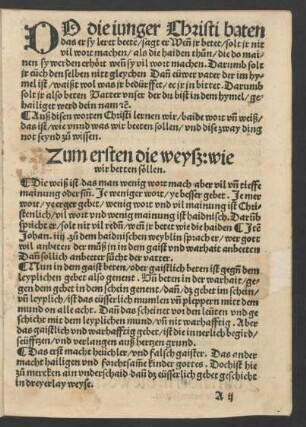 DO die iunger Christi baten
das er sy leret bette/ sagt er Wen̄ jr betet/ solt jr nit
vil wort machen/ als die haiden thůn/ die do mai-
nen sy werden erhört wen̄ sy vil wort machen. Darumb solt
jr auch den selben nitt gleychen Dañ eüwer vater der im hy
mel ist/ waißt wol was jr bedürffet/ ee jr in bittet. Darumb
solt jr also beten Vatter vnser der du bist in dem hymel/ ge-
hailiget werd dein nam ꝛc.
¶ Auß disen worten Christi lernen wir/ baide wort vn̄ weiß/
das ist/ wie vnnd was wir beeten sollen/ vnd dise zway ding
not seynd zu wissen.
Zum ersten die weyß: wie
wir betten söllen.
¶ Die weiß ist das man wenig wort mach aber vil vn̄ tieffe
mainung oder siñ. Je weniger wort/ ye besser gebet. Je mer
wort/ ye erger gebet/ wenig wort vnd vil mainung ist Chri-
stenlich/ vil wort vnd wenig mainung ist haidnisch. Darūb
spricht er/ solt nit vil redn̄/ wen̄ jr betet wie die haiden ¶ Jtē
Johan. iiij zu dem haidnischen weyblin sprach er/ wer got
wil anbeten der můß jn in dem gaist vnd warhait anbetten
Dañ söllich anbetter sücht der vatter.
¶ Nun in dem gaist beten/ oder gaistlich beten ist gegē dem
leyplichen gebet also genent. Vñ beten in der warhait/ ge-
gen dem gebet in dem schein genent/ dañ/ dz gebet im schein/
vñ leyplich/ ist das eüsserlich mumlen vn̄ pleppern mitt dem
mund on alle acht. Dañ das scheinet vor den leüten vnd ge
schicht mit dem leyplichen mund/ vn̄ nit warhafftig. Aber
das gaistlich vnd warhafftig gebet/ ist die innerlich begird/
seüfftzen/ vnd verlangen auß hertzen grund.
¶ Das erst macht heüchler/ vnd falsch gaister. Das ander
macht hailigen vnd forchtsam̄ kinder gottes. Doch ist hie
zu mercken ain vnderschaid dañ dz eüsserlich gebet geschicht
in dreyerlay weyse.
A ij